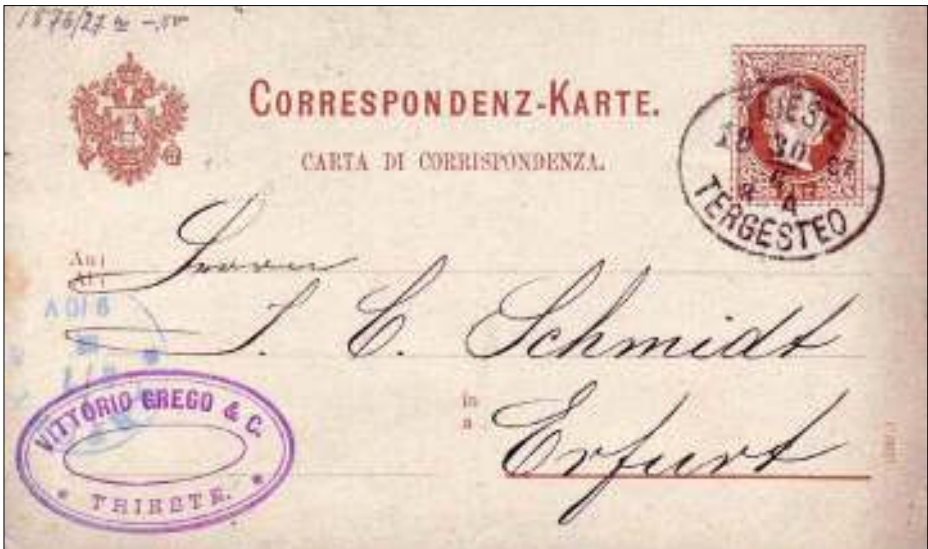 1876/27
CORRESPONDENZ-KARTE.
CARTA DI CORRISPONDENZA.
TERGESTEO
An
Al
Herrn
J. C. Schmidt
in
a
Erfurt
VITTORIO GREGO & C.
TRIESTE.